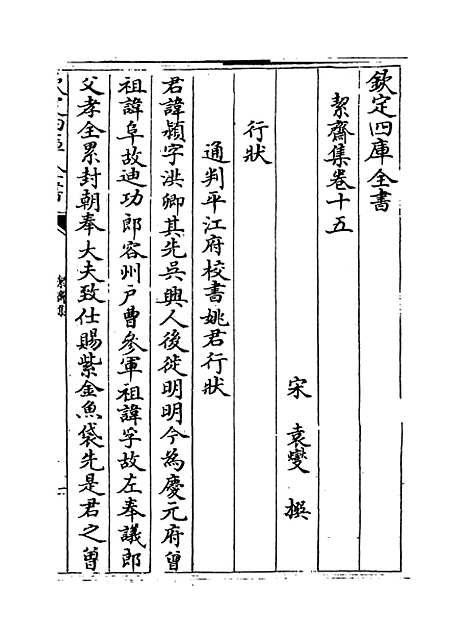 欽定四庫全書
絜齋集卷十五
宋 袁燮 撰
行狀
通判平江府校書姚君行狀
君諱潁字洪卿其先吳興人後徙明明今為慶元府曾
祖諱阜故迪功郎容州戶曹參軍祖諱孚故左奉議郎
父孝全累封朝奉大夫致仕賜紫金魚袋先是君之曾